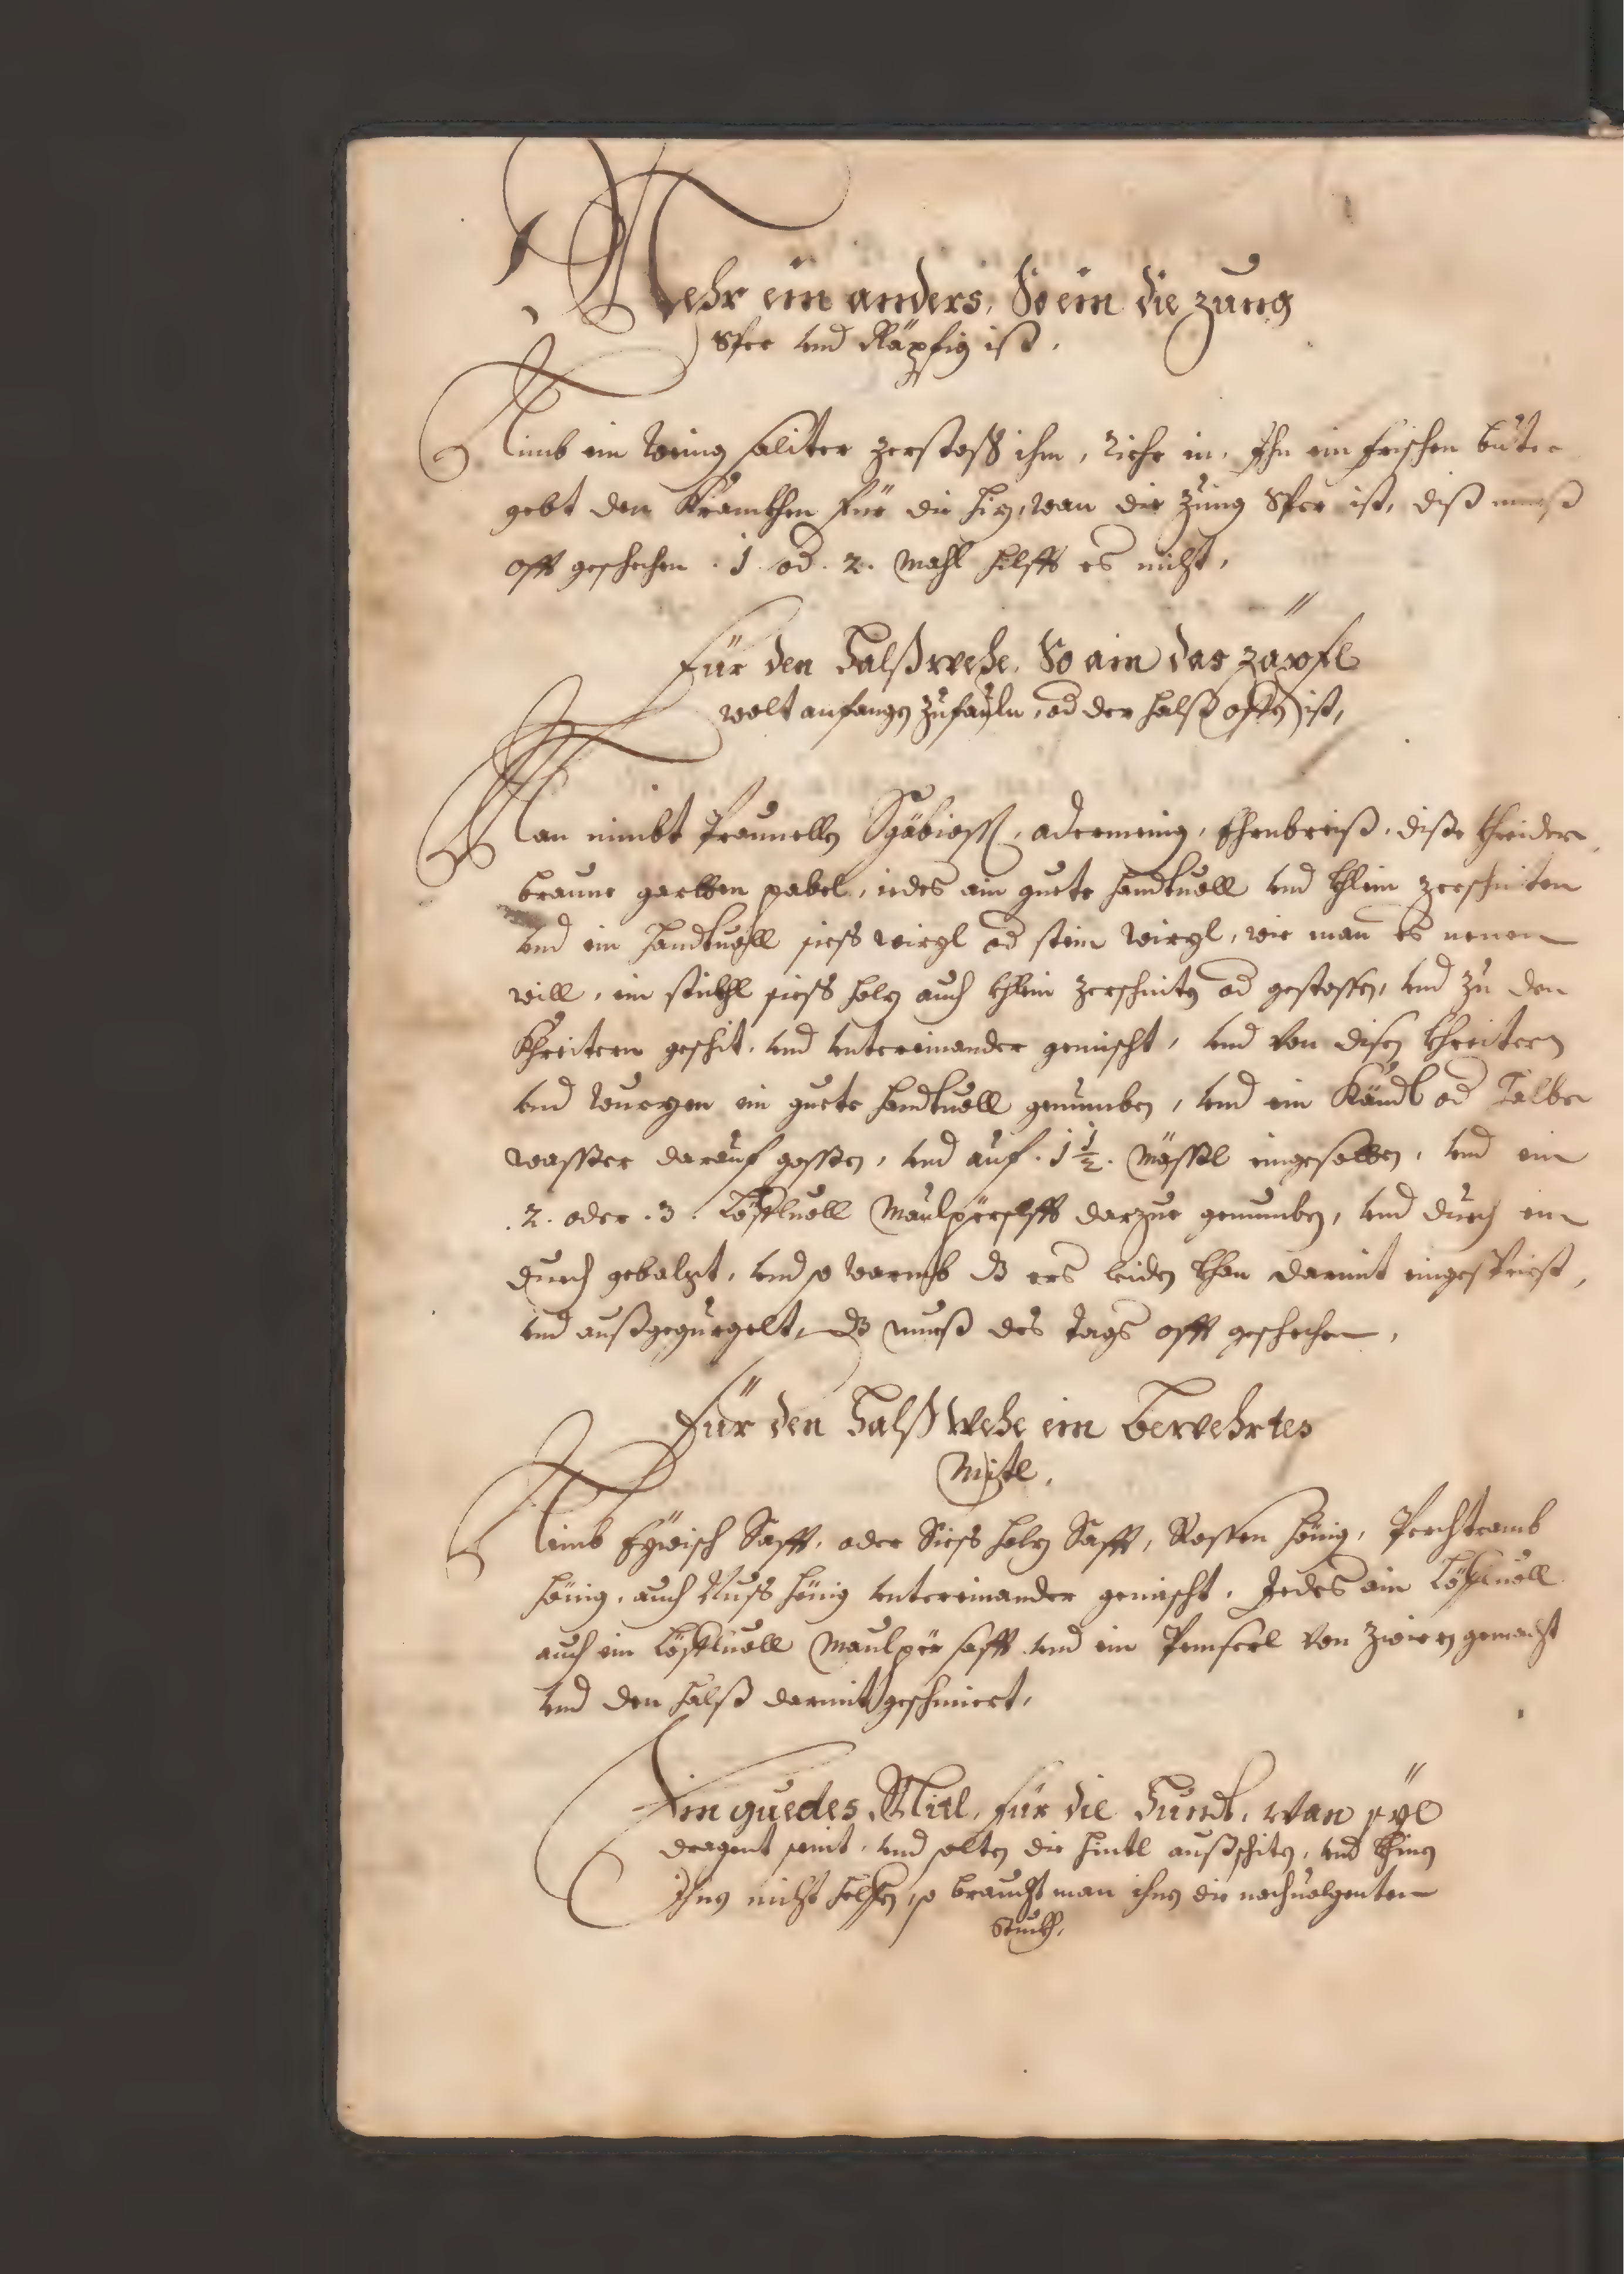 Mehr ein anders, So ein die zung
Sper vnd Räpfig ist.
Nimb ein wenig saliter zerstoß ihm, riehr in. Ihn ein frischen buter
gebt den Kranckhen für die hiz, wan die Zung Sper ist, diß mueß
offt geschechen .1. od .2. mahl hilfft es nicht,
Für den Halßwehe, So ain das zäpfl
wolt anfangen zufauln, od der halß offen ist,
Man nimbt Praunellen Scäbiosß, adermenig, Ehrnbreiß, diße khreider
braune garben pabel, iedes ain guete handtuoll vnd khlein zerschniten
vnd ein handtuoll siess wirzl od stein wirzl, wie man es nenen
will, ein stückhl siess holz auch khlein zerschniten od gestossen, vnd zu den
Khreitern geschit, vnd untereinander gemischt, vnd von disen khreitern
vnd wurzen ein guete handtuoll genumben, vnd ein Kändl od Halbe
wasser darauf gossen, vnd auf .1 1/2. mässl eingesotten, vnd ein
.2. oder .3. Löffluoll Maulpörsafft darzue genumben, vnd durch ein
duech gebalzt, vnd so warmb dz ers leiden khan darmit eingesprizt,
vnd außgegurgelt, dz mueß des tags offt geschechen,
Für den Halß wehe ein bewehrtes
Mitl.
Nimb Eywisch Safft, oder Siess holz Safft, Rossen hönig, Perchtramb
hönig, auch Nuss hönig untereinander gemischt. Jedes ain Löffluoll
auch ein Löffluoll Maulpör safft vnd ein Pemserl von zwiren gemacht
vnd den halß darmit geschmiert,
Ein guedes Mitl, für die Hündt, wan sye
dragent seint, vnd solten die hintl außschiten, vnd khinen
Ihnen nicht helffen, so braucht man ihnen die nachuolgenten
Stuckh,